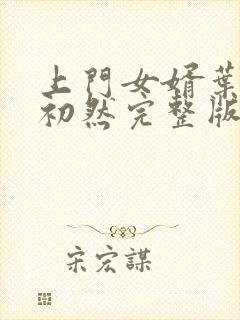 上門女婿葉
初然完整版
宋宏謀